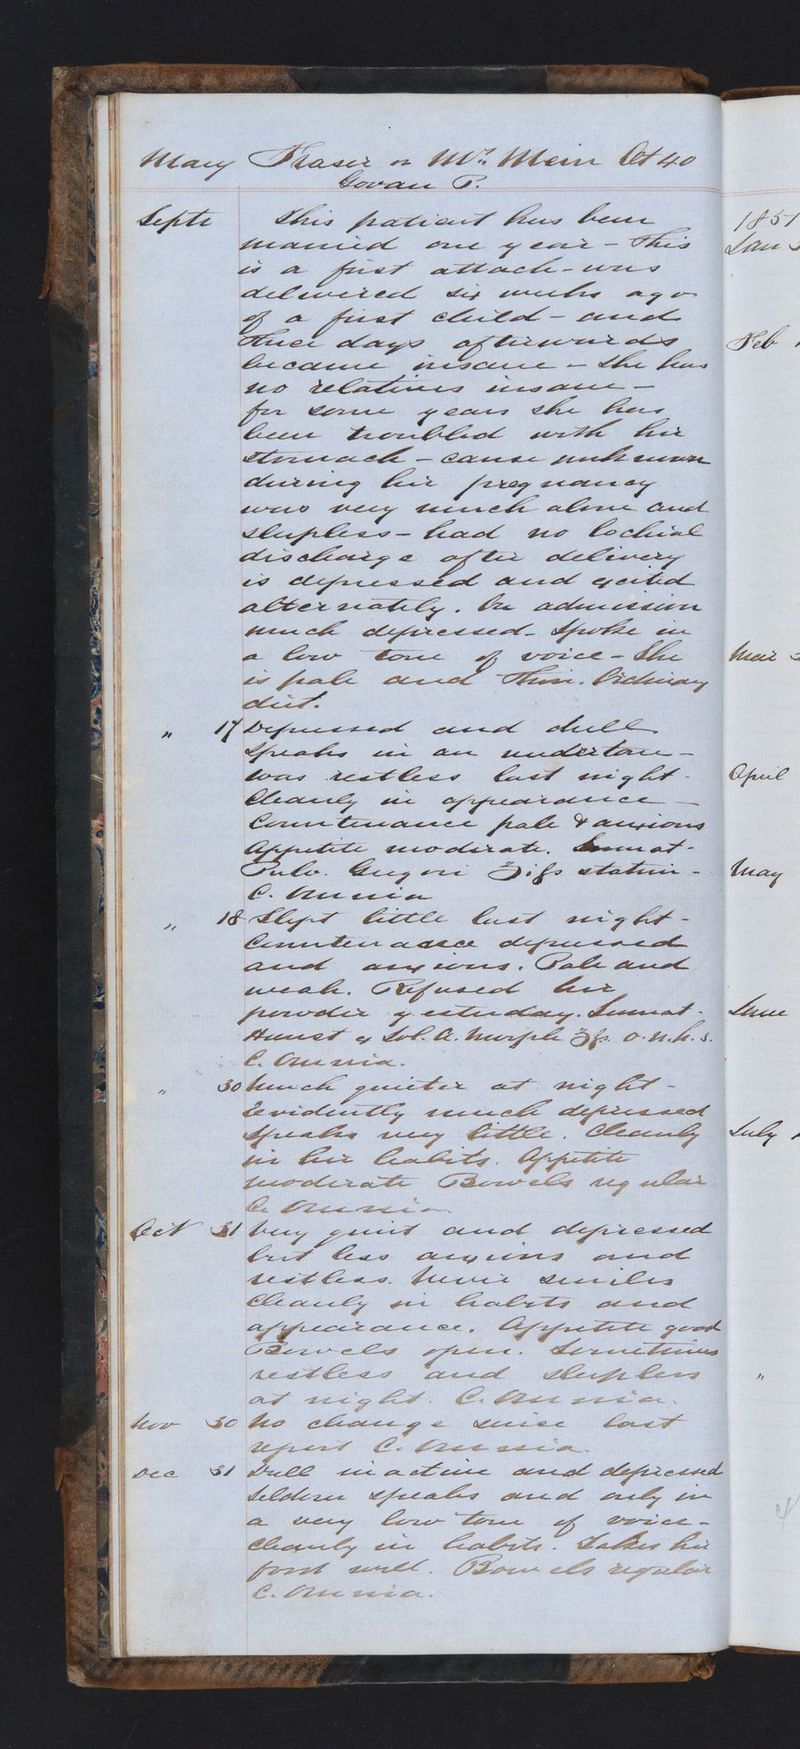 Mary Fraser or Mrs. Mein Æt 40
Govan P.
Septr This patient has been
married one year - This
is a first attack - was
delivered six weeks ago
of a first child - and
three days afterwards
became insane - she has
no relatives insane -
for some years she has
been troubled with her
stomach - cause unknown
during her pregnancy
was very much alone and
sleepless - had no lochial
discharge after delivery
is depressed and excited
alternately. On admission
much depressed - spoke in
a low tone of voice - She
is pale and thin. Ordinary
diet.
" 17 Depressed and dull
speaks in an undertone -
was restless last night -
Cleanly in appearance -
Countenance pale & anxious
Appetite moderate. Sumat.
Pulv. Gregori ʒifs statim -
C. Omnia
" 18 Slept little last night -
Countenance depressed
and anxious. Pale and
weak. Refused her
powder yesterday. Sumat.
Haust Sol. A. Morph ʒfs. o.n.h.s.
C. Omnia.
" 30 Much quieter at night -
Evidently much depressed
speaks very little. Cleanly
in her habits. Appetite
moderate Bowels regular.
C. Omnia
Oct 31 Very quiet and depressed
but less anxious and
restless. Never smiles
Cleanly in habits and
appearance. Appetite good
Bowels open. Sometimes
restless and sleepless
at night. C. Omnia.
Nov 30 No change since last
report C. Omnia.
Dec 31 Dull inactive and depressed
Seldom speaks and only in
a very low tone of voice -
Cleanly in habits. Takes her
food well. Bowels regular
C. Omnia.
1851
Jan
Feb
Mar
April
May
June
July
"